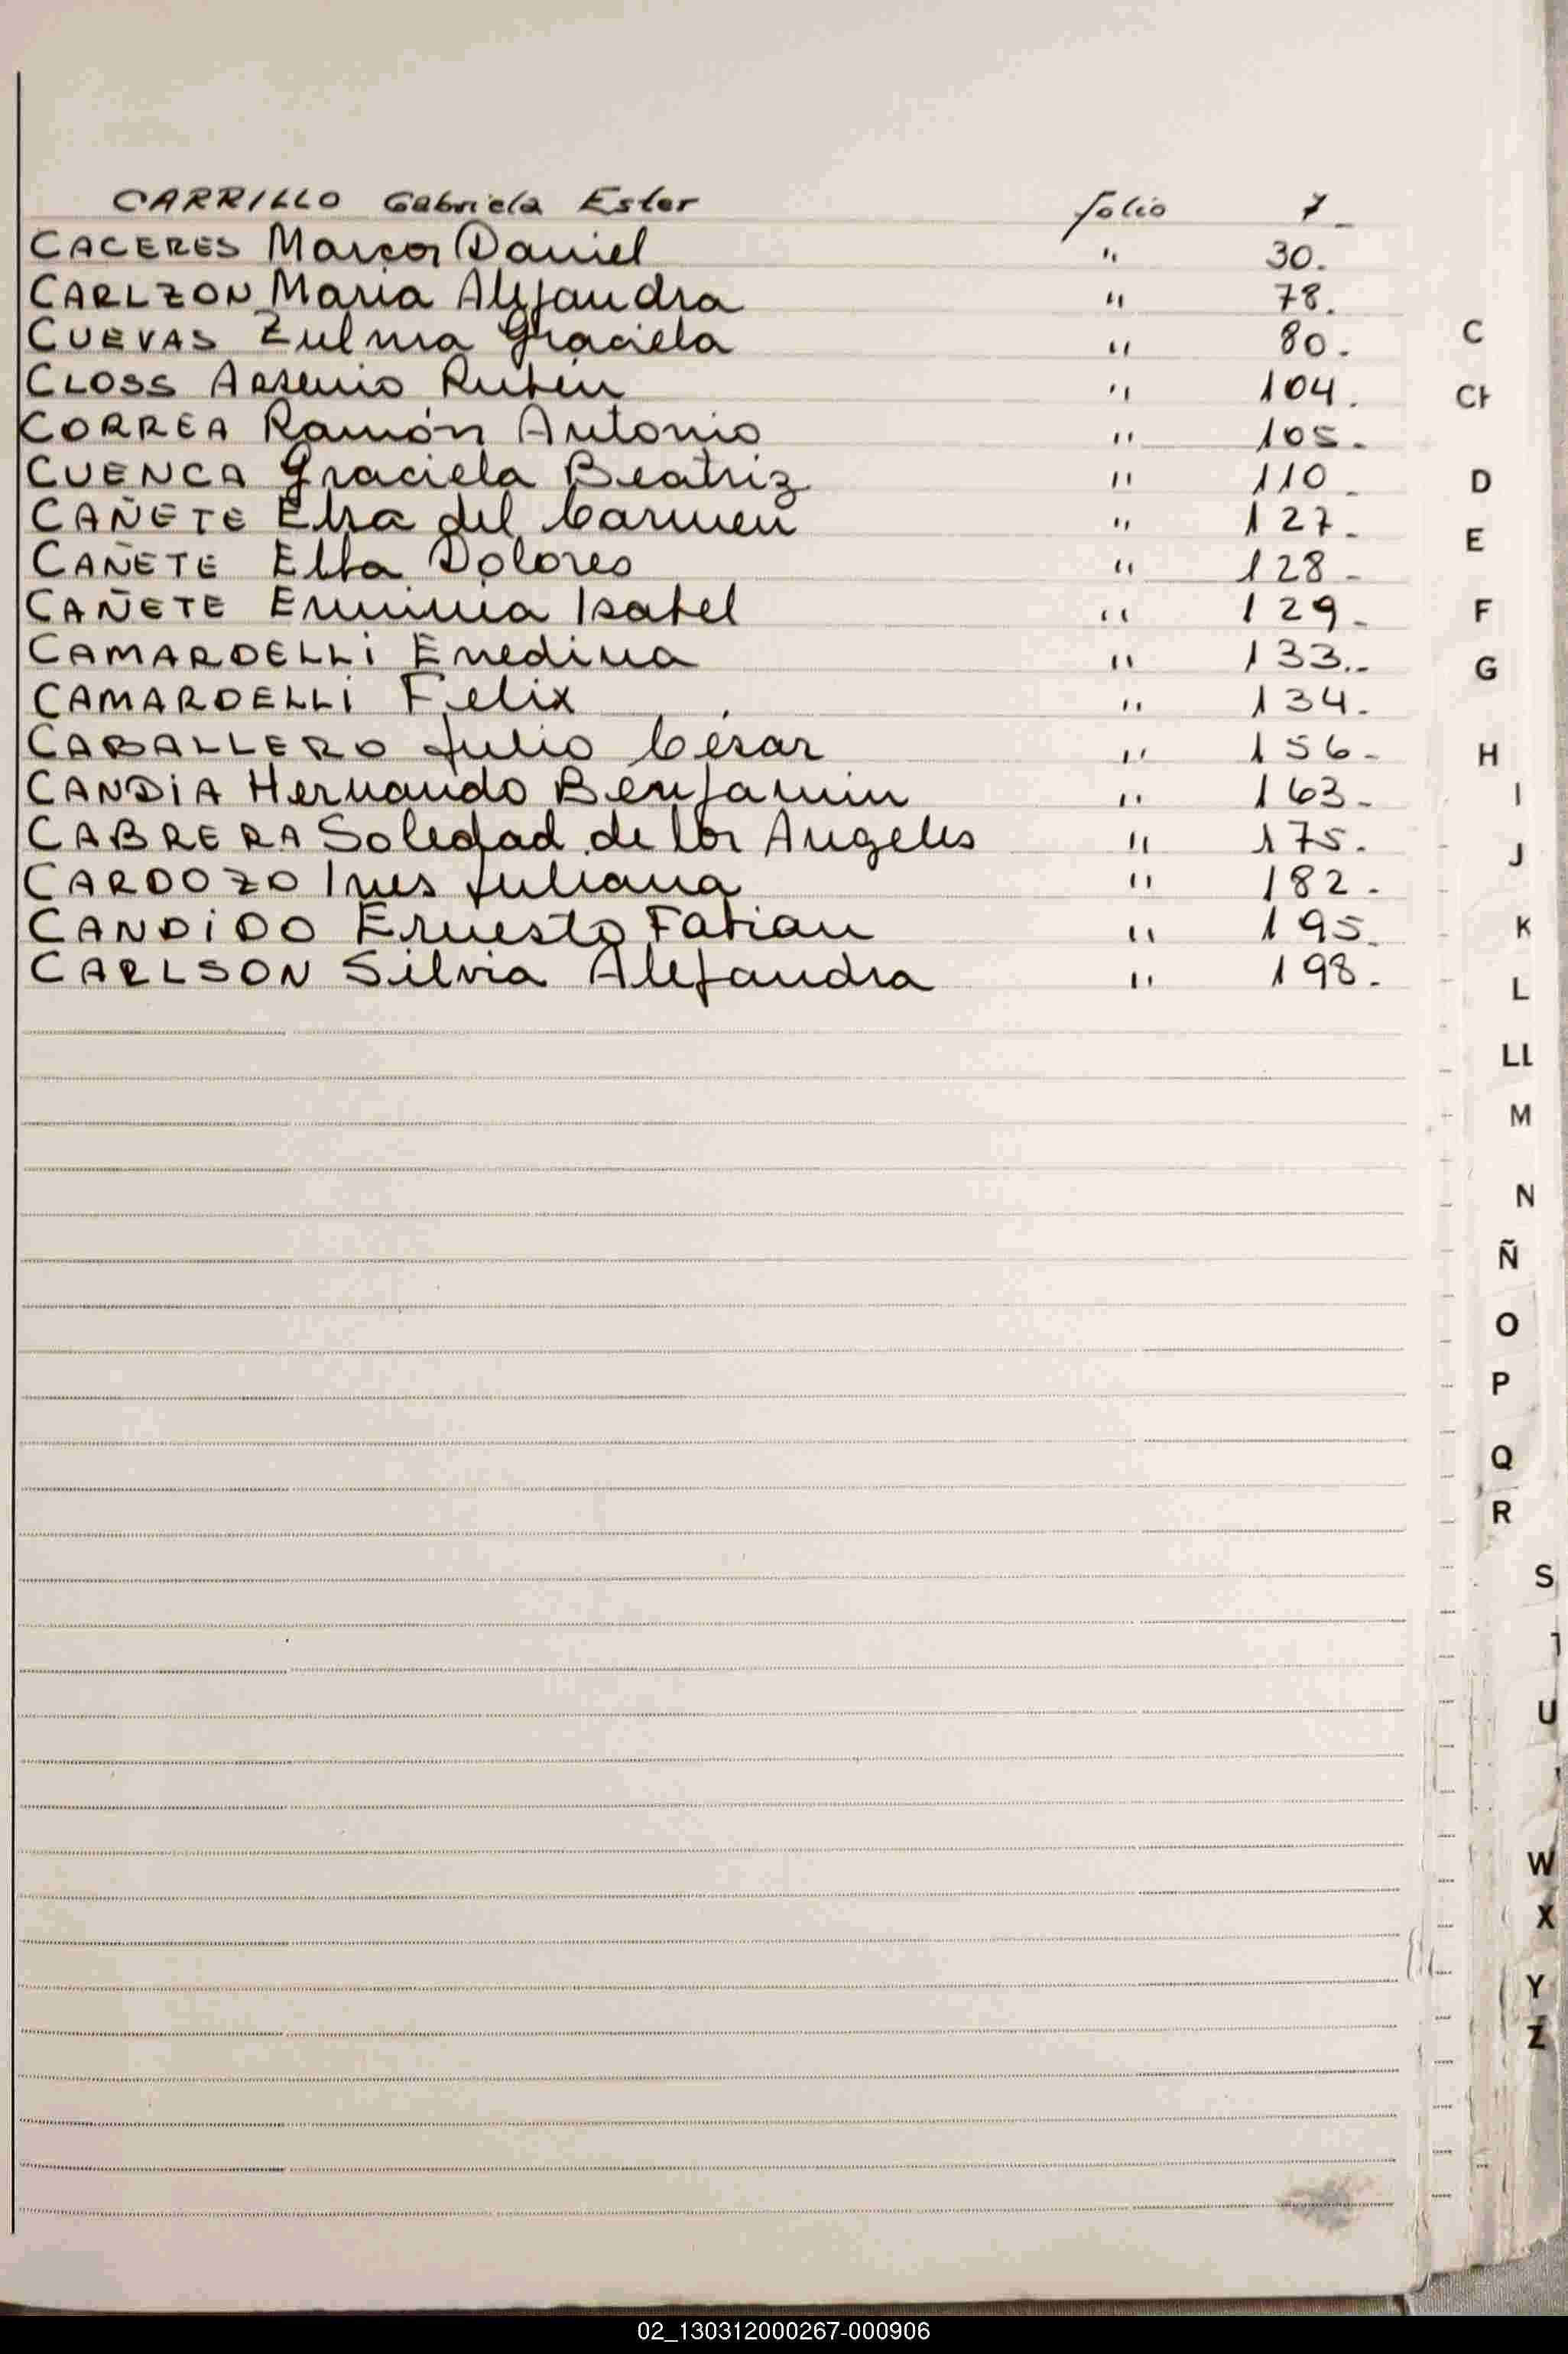 CARRILLO Gabriela Ester folio 7_
CACERES Marcos Daniel " 30.
CARLZON Maria Alejandra " 78.
CUEVAS Zulma Graciela " 80.
CLOSS Arsenio Rubén " 104.
CORREA Ramón Antonio " 105.
CUENCA Graciela Beatriz " 110_
CAÑETE Elsa del Carmen " 127_
CAÑETE Elba Dolores " 128_
CAÑETE Erminia Isabel " 129_
CAMARDELLI Enedina " 133._
CAMARDELLI Felix " 134.
CABALLERO Julio César " 156_
CANDIA Hernando Benjamin " 163_
CABRERA Soledad de los Angeles " 175.
CARDOZO Ines Juliana " 182.
CANDIDO Ernesto Fabian " 195_
CARLSON Silvia Alejandra " 198.
C
D
E
F
G
H
I
J
K
L
LL
M
N
Ñ
O
P
Q
R
S
U
W
X
Y
Z
02_130312000267-000906